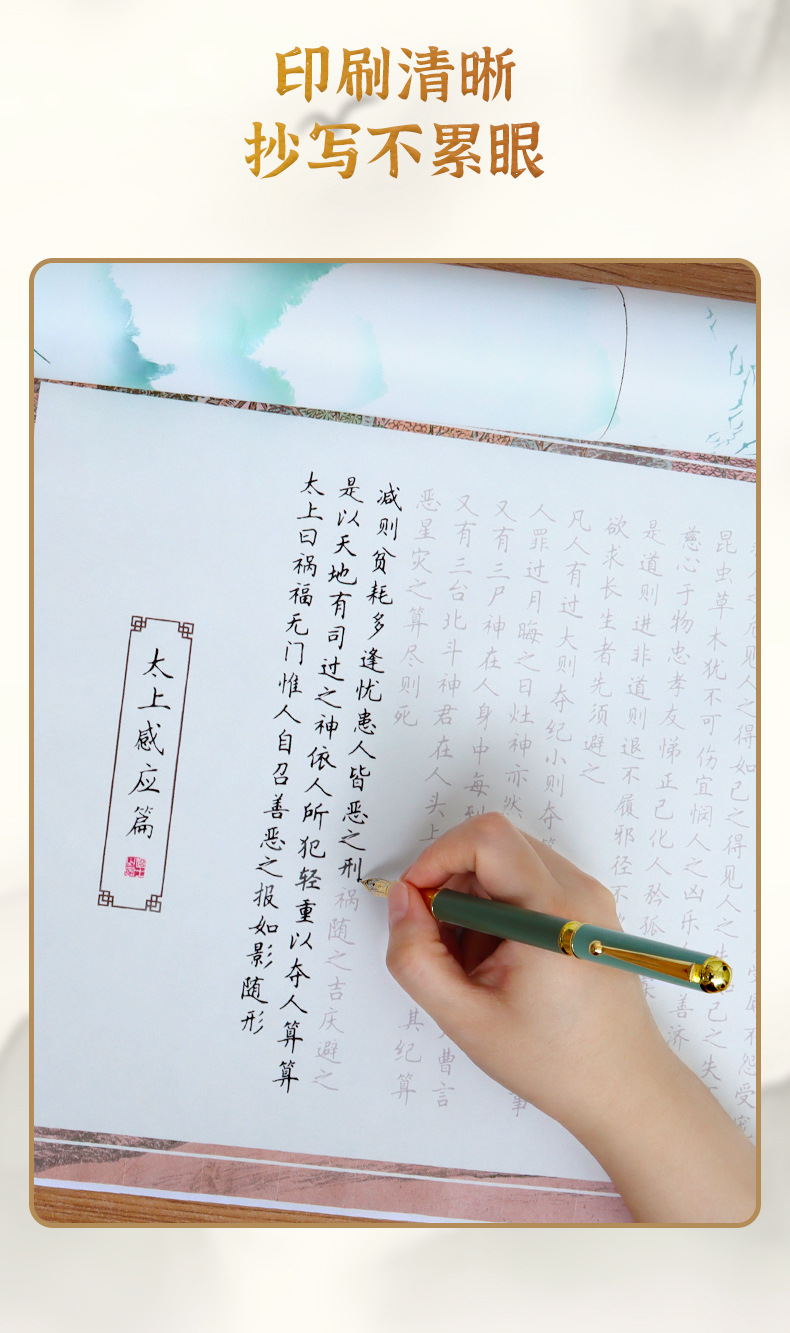 印刷清晰
抄写不累眼
太上感应篇
太上曰祸福无门惟人自召善恶之报如影随形
是以天地有司过之神依人所犯轻重以夺人算算
减则贫耗多逢忧患人皆恶之刑祸随之吉庆避之
恶星灾之算尽则死
又有三台北斗神君在人头上其纪算
又有三尸神在人身中每到曹言
人罪过月晦之日灶神亦然
凡人有过大则夺纪小则夺事
欲求长生者先须避之
是道则进非道则退不履邪径不
慈心于物忠孝友悌正己化人矜孤
昆虫草木犹不可伤宜悯人之凶乐善济
之危见人之得如己之得见人之己之失
不怨受